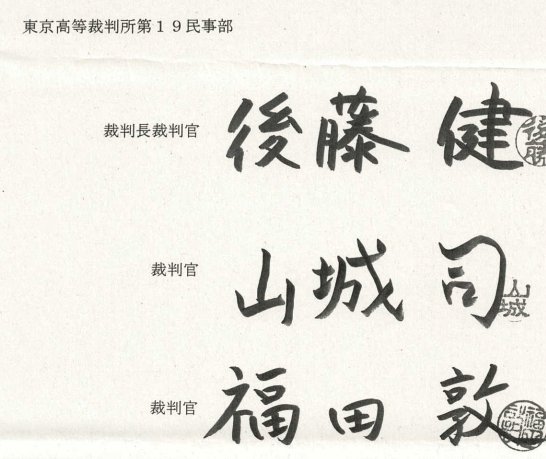 東京高等裁判所第１９民事部
裁判長裁判官 後藤 健
裁判官 山城 司
山城
裁判官 福田 敦